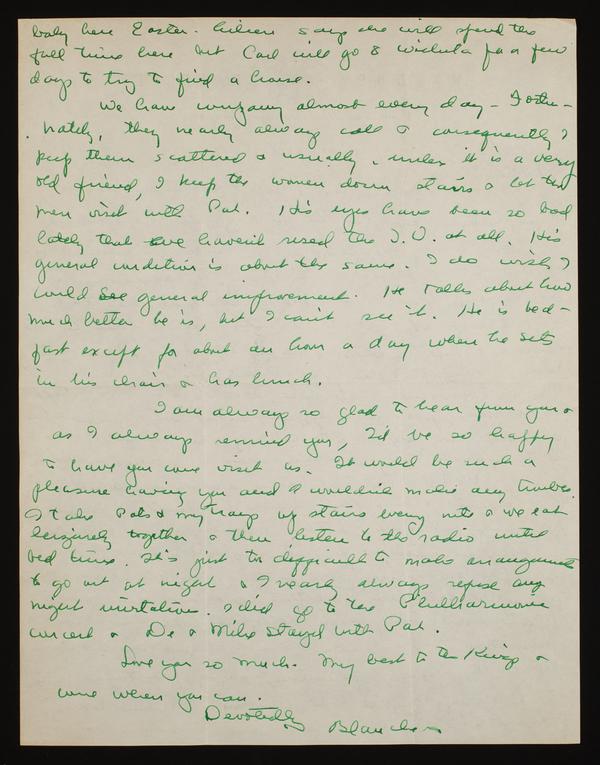 baby here Easter. Eileen says she will spend the
full time here but Carl will go to Wichita for a few
days to try to find a house.
We have company almost every day - Fortu-
nately, they nearly always call & consequently I
keep them scattered & usually, unless it is a very
old friend, I keep the women down stairs & let the
men visit with Pat. His eyes have been so bad
lately that we haven't used the T.V. at all. His
general condition is about the same. I do wish I
could see general improvement. He talks about how
much better he is, but I can't see it. He is bed-
fast except for about an hour a day when he sits
in his chair & has lunch.
I am always so glad to hear from you &
as I always remind you, I'd be so happy
to have you come visit us. It would be such a
pleasure having you and it wouldn't make any trouble.
I take Pat's & my trays up stairs every nite & we eat
leisurely together & then listen to the radio until
bed time. It's just too difficult to make arrangements
to go out at night & I nearly always refuse any
night invitation. I did go to the Philharmonic
concert & De & Mike stayed with Pat.
Love you so much. My best to the Kings &
come when you can.
Devotedly
Blanche